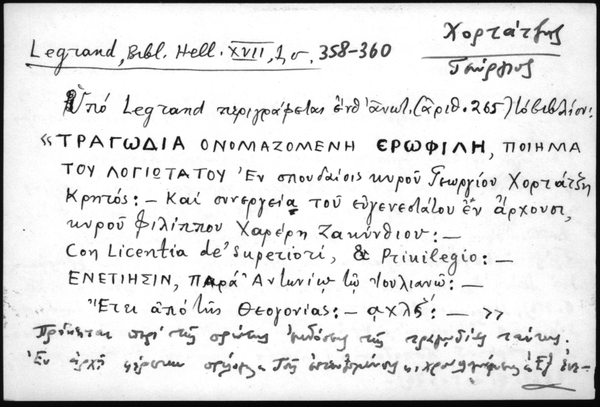 Χορτάτζης
Γεώργιος
Legrand, Bibl. Hell. XVII, 1, σ. 358-360
Ὑπό Legrand περιγράφεται ἐνθ' ἀνωτ. (ἀριθ. 265) τό βιβλίον:
«ΤΡΑΓΩΔΙΑ ΟΝΟΜΑΖΟΜΕΝΗ ΕΡΩΦΙΛΗ, ΠΟΙΗΜΑ
ΤΟΥ ΛΟΓΙΩΤΑΤΟΥ Ἐν σπουδαίοις κυροῦ Γεωργίου Χορτάτζη
Κρητός: – Καί συνεργεία τοῦ εὐγενεστάτου ἐν ἄρχουσι,
κυροῦ Φιλίππου Χαρέρη Ζακυνθίου: –
Con Licentia de' Superiori, & Privilegio: –
ΕΝΕΤΙΗΣΙΝ, Παρά Ἀντωνίῳ τῷ Ἰουλιανῷ: –
Ἔτει ἀπό τῆς Θεογονίας: – αχλζ΄: – »
Πρόκειται περί τῆς πρώτης ἐκδόσεως τῆς τραγωδίας ταύτης.
Ἐν ἀρχῇ